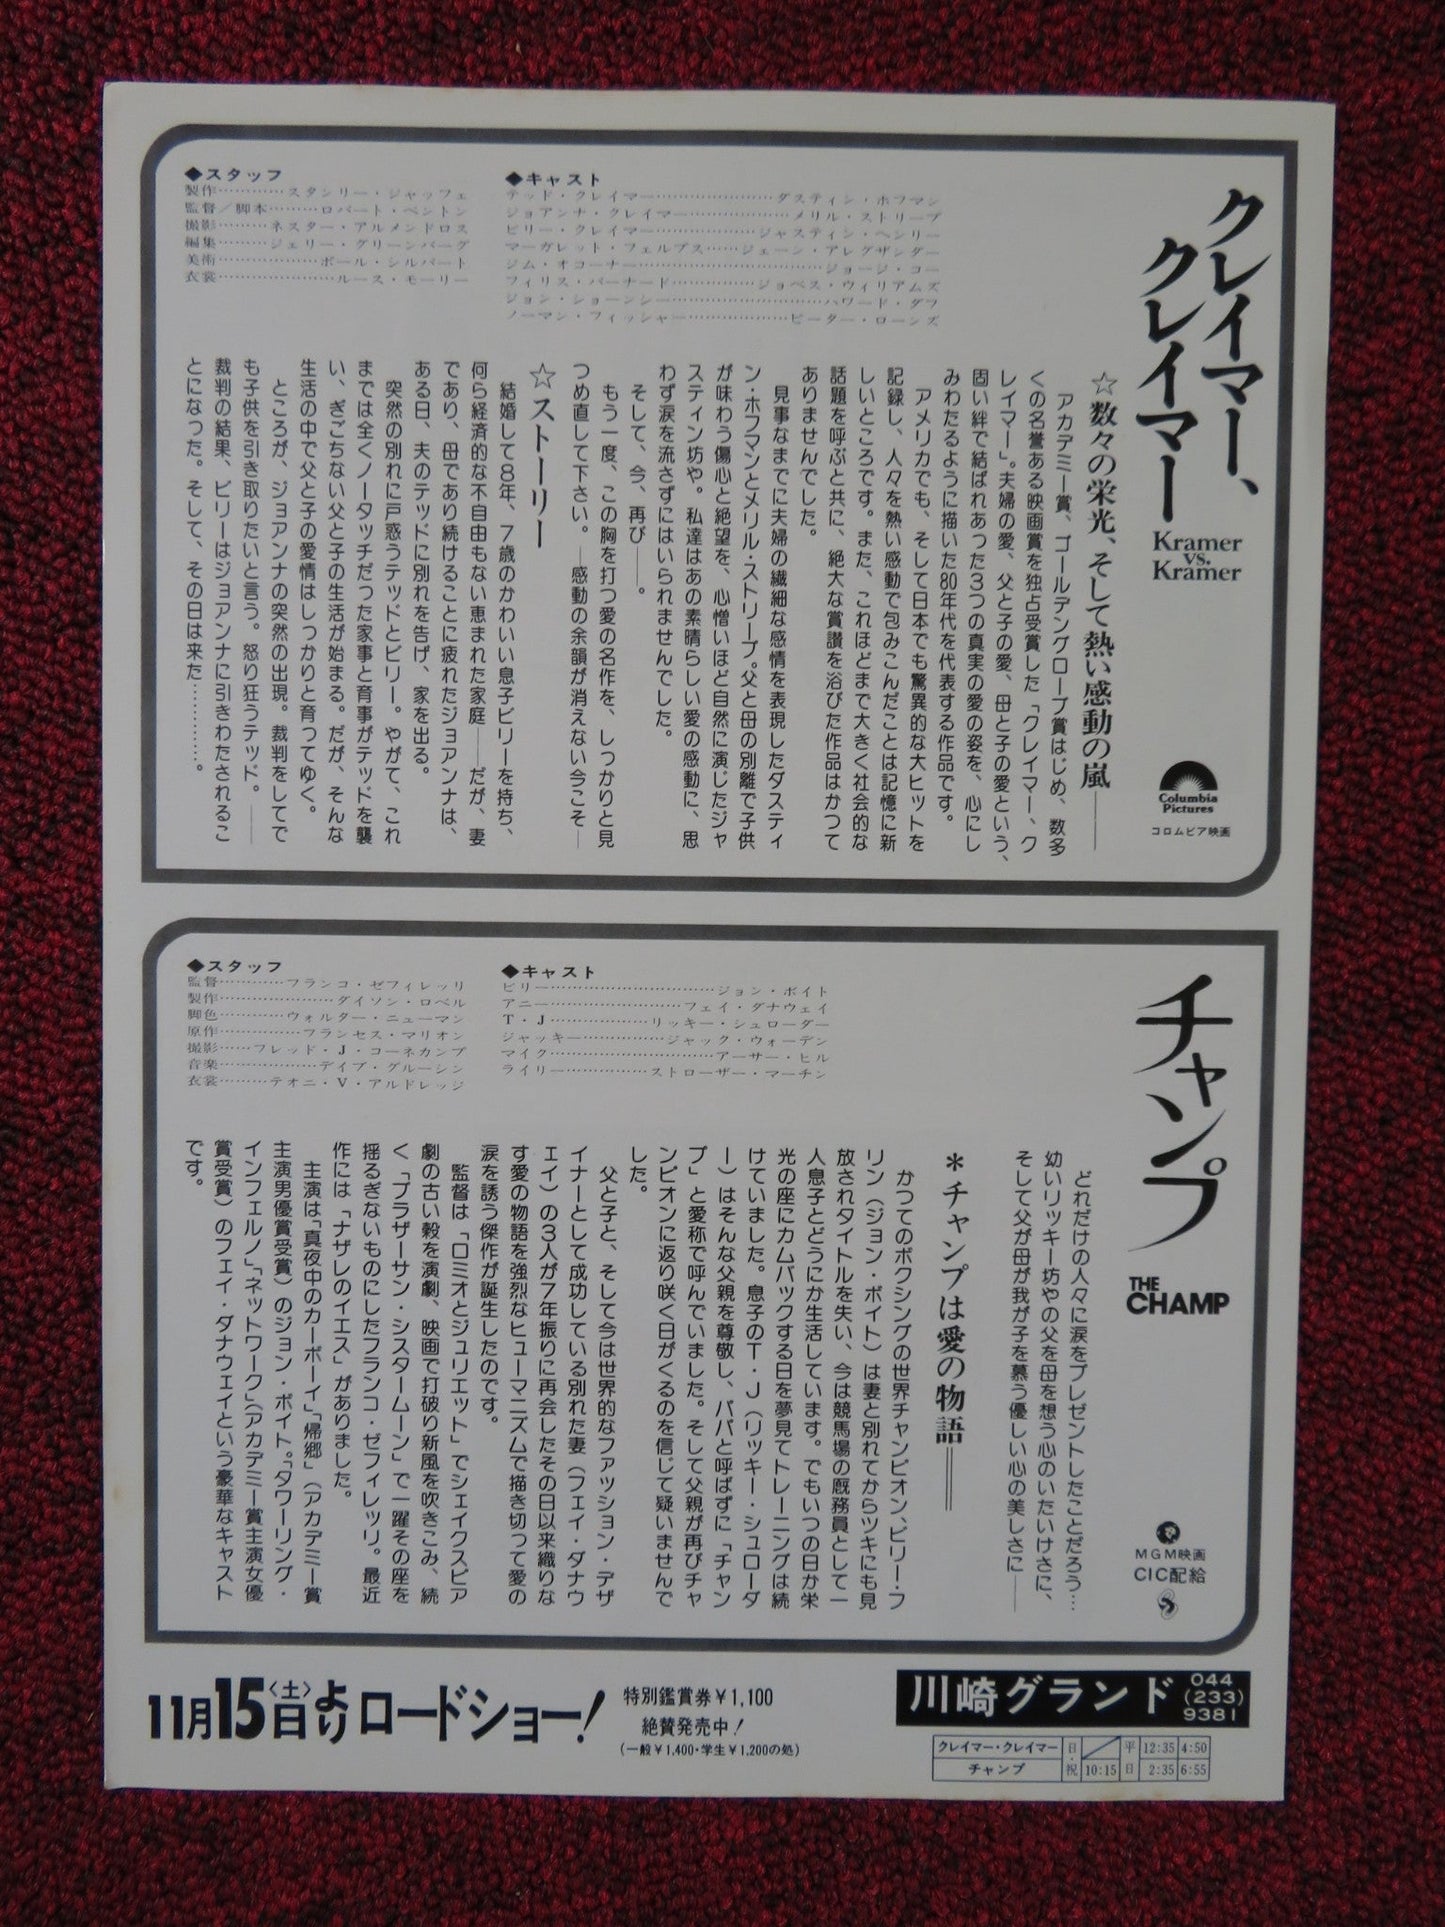 クレイマー、
クレイマー
Kramer
vs.
Kramer
Columbia
Pictures
コロムビア映画
☆数々の栄光、そして熱い感動の嵐――
アカデミー賞、ゴールデングローブ賞はじめ、数多
くの名誉ある映画賞を独占受賞した「クレイマー、ク
レイマー」。夫婦の愛、父と子の愛、母と子の愛という、
固い絆で結ばれあった3つの真実の愛の姿を、心にし
みわたるように描いた80年代を代表する作品です。
アメリカでも、そして日本でも驚異的な大ヒットを
記録し、人々を熱い感動で包みこんだことは記憶に新
しいところです。また、これほどまで大きく社会的な
話題を呼ぶと共に、絶大な賞讃を浴びた作品はかつて
ありませんでした。
見事なまでに夫婦の繊細な感情を表現したダスティ
ン・ホフマンとメリル・ストリープ。父と母の別離で子供
が味わう傷心と絶望を、心憎いほど自然に演じたジャ
スティン坊や。私達はあの素晴らしい愛の感動に、思
わず涙を流さずにはいられませんでした。
そして、今、再び――。
もう一度、この胸を打つ愛の名作を、しっかりと見
つめ直して下さい。―感動の余韻が消えない今こそ―
☆ストーリー
結婚して8年、7歳のかわいい息子ビリーを持ち、
何ら経済的な不自由もない恵まれた家庭――だが、妻
であり、母であり続けることに疲れたジョアンナは、
ある日、夫のテッドに別れを告げ、家を出る。
突然の別れに戸惑うテッドとビリー。やがて、これ
までは全くノータッチだった家事と育事がテッドを襲
い、ぎごちない父と子の生活が始まる。だが、そんな
生活の中で父と子の愛情はしっかりと育ってゆく。
ところが、ジョアンナの突然の出現。裁判をしてで
も子供を引き取りたいと言う。怒り狂うテッド。――
裁判の結果、ビリーはジョアンナに引きわたされるこ
とになった。そして、その日は来た…………。
◆キャスト
テッド・クレイマー…………ダスティン・ホフマン
ジョアンナ・クレイマー…………メリル・ストリープ
ビリー・クレイマー…………ジャスティン・ヘンリー
マーガレット・フェルプス……ジェーン・アレグザンダー
ジム・オコーナー…………………ジョージ・コー
フィリス・バーナード…………ジョベス・ウィリアムズ
ジョン・ショーンシー………………ハワード・ダフ
ノーマン・フィッシャー…………ピーター・ローンズ
◆スタッフ
製作…………スタンリー・ジャッフェ
監督／脚本………ロバート・ベントン
撮影………ネスター・アルメンドロス
編集………ジェリー・グリーンバーグ
美術…………ポール・シルバート
衣裳……………ルース・モーリー
チャンプ
THE
CHAMP
MGM映画
CIC配給
どれだけの人々に涙をプレゼントしたことだろう…
幼いリッキー坊やの父を母を想う心のいたいけさに、
そして父が母が我が子を慕う優しい心の美しさに――
＊チャンプは愛の物語――
かつてのボクシングの世界チャンピオン、ビリー・フ
リン（ジョン・ボイト）は妻と別れてからツキにも見
放されタイトルを失い、今は競馬場の厩務員として一
人息子とどうにか生活しています。でもいつの日か栄
光の座にカムバックする日を夢見てトレーニングは続
けていました。息子のT・J（リッキー・シュローダ
ー）はそんな父親を尊敬し、パパと呼ばずに「チャン
プ」と愛称で呼んでいました。そして父親が再びチャ
ンピオンに返り咲く日がくるのを信じて疑いませんで
した。
父と子と、そして今は世界的なファッション・デザ
イナーとして成功している別れた妻（フェイ・ダナウ
ェイ）の3人が7年振りに再会したその日以来織りな
す愛の物語を強烈なヒューマニズムで描き切って愛の
涙を誘う傑作が誕生したのです。
監督は「ロミオとジュリエット」でシェイクスピア
劇の古い殻を演劇、映画で打破り新風を吹きこみ、続
く「ブラザーサン・シスタームーン」で一躍その座を
揺るぎないものにしたフランコ・ゼフィレッリ。最近
作には「ナザレのイエス」がありました。
主演は「真夜中のカーボーイ」「帰郷」（アカデミー賞
主演男優賞受賞）のジョン・ボイト。「タワーリング・
インフェルノ」「ネットワーク」（アカデミー賞主演女優
賞受賞）のフェイ・ダナウェイという豪華なキャスト
です。
◆キャスト
ビリー………………………ジョン・ボイト
アニー……………………フェイ・ダナウェイ
T・J………………リッキー・シュローダー
ジャッキー……………ジャック・ウォーデン
マイク………………………アーサー・ヒル
ライリー……………ストローザー・マーチン
◆スタッフ
監督…………フランコ・ゼフィレッリ
製作………………ダイソン・ロベル
脚色…………ウォルター・ニューマン
原作…………フランセス・マリオン
撮影……フレッド・J・コーネカンプ
音楽………………デイブ・グルーシン
衣裳………テオニ・V・アルドレッジ
11月15日〈土〉よりロードショー！
特別鑑賞券￥1,100
絶賛発売中！
（一般￥1,400・学生￥1,200の処）
川崎グランド 044(233)9381
クレイマー・クレイマー 日・祝 平日 12:35 4:50
チャンプ 10:15 2:35 6:55